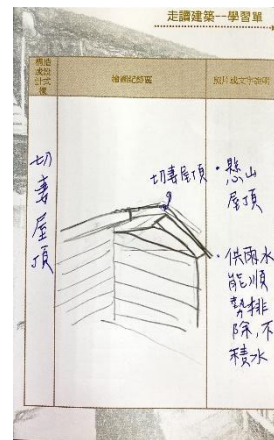 走讀建築--學習單
構造或設計式樣
繪圖紀錄區
照片或文字說明
切妻屋頂
切妻屋頂
・懸山
屋頂
・供雨水
能順
勢排
除,不
積水